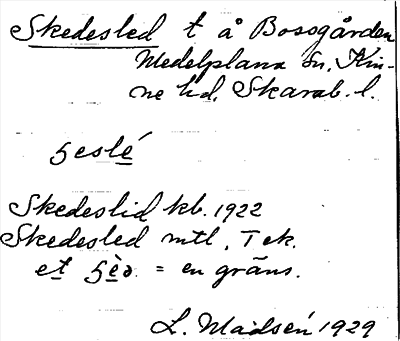 Skedesled t å Bossgården
Medelplana Sn, Kin-
ne hd. Skarab. l.
ʒeslé
Skedeslid kb. 1922
Skedesled mtl, T ek.
et ʒèd. = en gräns.
L. Madsén 1929